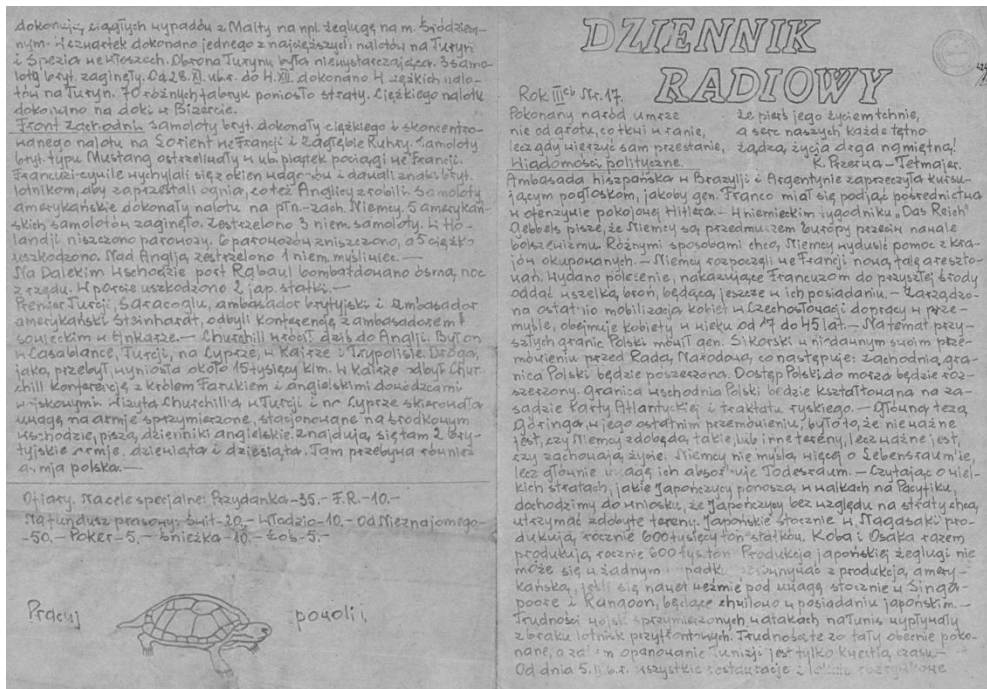 dokonują ciągłych wypadów z Malty na npl. żeglugę na m. Śródziem-
nym. W czwartek dokonano jednego z najcięższych nalotów na Turyn
i Spezia we Włoszech. Obrona Turynu była niewystarczająca. 3 samo-
loty bryt. zaginęły. Od 28.XI. ub.r. do 4.XII. dokonano 4 ciężkich nalo-
tów na Turyn. 70 różnych fabryk poniosło straty. Ciężkiego nalotu
dokonano na doki w Bizercie.
Front zachodni. Samoloty bryt. dokonały ciężkiego i skoncentro-
wanego nalotu na Lorient we Francji i Zagłębie Ruhry. Samoloty
bryt. typu Mustang ostrzeliwały w ub. piątek pociągi we Francji.
Francuzi-cywile wychylali się z okien wagonów i dawali znaki bryt.
lotnikom, aby zaprzestali ognia, co też Anglicy zrobili. Samoloty
amerykańskie dokonały nalotu na płn.-zach. Niemcy. 5 amerykań-
skich samolotów zaginęło. Zestrzelono 3 niem. samoloty. W Ho-
landji niszczono parowozy. 6 parowozów zniszczono, a 5 ciężko
uszkodzono. Nad Anglją zestrzelono 1 niem. myśliwiec. —
Na Dalekim Wschodzie port Rabaul bombardowano ósmą noc
z rzędu. W porcie uszkodzono 2 jap. statki. —
Premier Turcji, Saracoglu, ambasador brytyjski i ambasador
amerykański Steinhardt, odbyli konferencję z ambasadorem
sowieckim w Ankarze. — Churchill wrócił dziś do Anglji. Był on
w Casablance, Turcji, na Cyprze, w Kairze i Trypolisie. Droga,
jaką przebył, wyniosła około 15 tysięcy klm. W Kairze odbył Chur-
chill konferencję z królem Farukiem i angielskimi dowódcami
wojskowymi. Wizyta Churchilla w Turcji i na Cyprze skierowała
uwagę na armje sprzymierzone, stacjonowane na środkowym
wschodzie, piszą dzienniki angielskie. Znajdują się tam 2 bry-
tyjskie armje, dziewiąta i dziesiąta. Tam przebywa również
armja polska. —
Ofiary. Na cele specjalne: Przydanka -35.- F.R. -10.-
Na fundusz prasowy: Świt -20.- Władzio -10.- Od Nieznajomego-
-50.- Poker -5.- Śnieżka -10.- Łoś -5.-
Pracuj powoli!
DZIENNIK
RADIOWY
Rok IIIci Nr. 17.
Pokonany naród umrze że pierś jego życiem tchnie,
nie od grotu, co tkwi w ranie, a serc naszych każde tętno
lecz gdy wierzyć sam przestanie, żądzą życia drga namiętną!
Wiadomości polityczne. K. Przerwa-Tetmajer.
Ambasada hiszpańska w Brazylji i Argentynie zaprzeczyła kursu-
jącym pogłoskom, jakoby gen. Franco miał się podjąć pośrednictwa
w ofenzywie pokojowej Hitlera. — W niemieckim tygodniku „Das Reich"
Gebbels pisze, że Niemcy są przedmurzem Europy przeciw nawale
bolszewizmu. Różnymi sposobami chcą Niemcy wydusić pomoc z kra-
jów okupowanych. — Niemcy rozpoczęli we Francji nową falę areszto-
wań. Wydano polecenie, nakazujące Francuzom do przyszłej środy
oddać wszelką broń, będącą jeszcze w ich posiadaniu. — Zarządzo-
na ostatnio mobilizacja kobiet w Czechosłowacji do pracy w prze-
myśle, obejmuje kobiety w wieku od 17 do 45 lat. — Na temat przy-
szłych granic Polski mówił gen. Sikorski w niedawnym swoim prze-
mówieniu przed Radą Narodową, co następuje: zachodnia gra-
nica Polski będzie poszerzona. Dostęp Polski do morza będzie roz-
szerzony. Granica wschodnia Polski będzie kształtowana na za-
sadzie Karty Atlantyckiej i traktatu ryskiego. — Główną tezą
Göringa w jego ostatnim przemówieniu, było to, że nieważne
jest, czy Niemcy zdobędą takie, lub inne tereny, lecz ważne jest,
czy zachowają życie. Niemcy nie myślą więcej o Lebensraum'ie,
lecz głównie uwagę ich absorbuje Todesraum. — Czytając o wiel-
kich stratach, jakie Japończycy ponoszą w walkach na Pacyfiku,
dochodzimy do wniosku, że Japończycy bez względu na straty chcą
utrzymać zdobyte tereny. Japońskie stocznie w Nagasaki pro-
dukują rocznie 600 tysięcy ton statków. Koba i Osaka razem
produkują rocznie 600 tys. ton. Produkcja japońskiej żeglugi nie
może się w żadnym wypadku porównywać z produkcją amery-
kańską, jeśli się nawet weźmie pod uwagę stocznie w Singa-
poore i Rangoon, będące chwilowo w posiadaniu japońskim. —
Trudności wojsk sprzymierzonych w atakach na Tunis wypływały
z braku lotnisk przyfrontowych. Trudności te zostały obecnie poko-
nane, a zatem opanowanie Tunizji jest tylko kwestią czasu. —
Od dnia 5.II. b.r. wszystkie restauracje i lokale